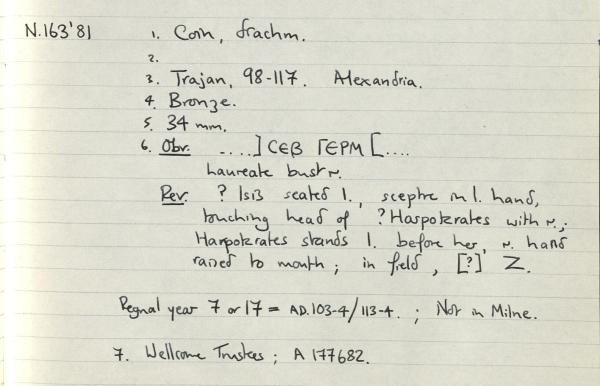 N.163'81 1. Coin, drachm.
2.
3. Trajan, 98-117. Alexandria.
4. Bronze.
5. 34 mm.
6. Obv. ....] CEB ΓEPM [....
Laureate bust r.
Rev. ? Isis seated l., sceptre in l. hand,
touching head of ?Harpokrates with r.;
Harpokrates stands l. before her, r. hand
raised to mouth; in field, [?] Z.
Regnal year 7 or 17 = AD.103-4/113-4. ; Not in Milne.
7. Wellcome Trustees; A 177682.